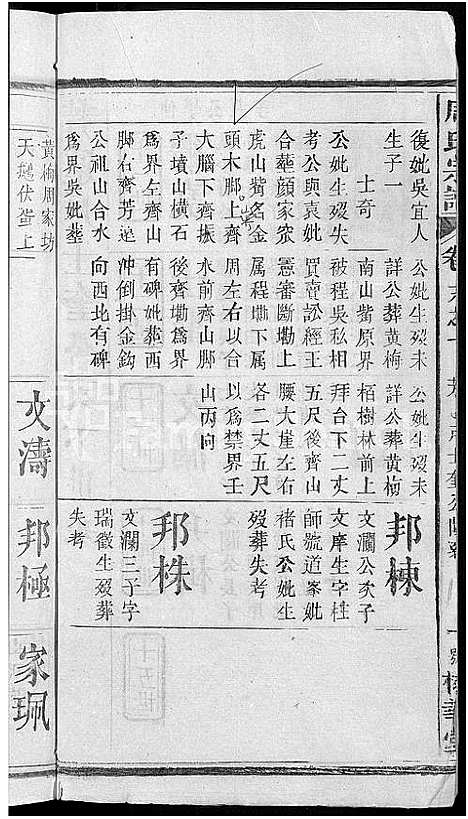 周氏宗譜 卷
復妣吳宜人
生子一
士奇
公妣生歿失
考公與袁妣
合塟顏家
虎山觜名金
頭木脚上齊
大腦下齊振
子墳山橫石
爲界左齊山
脚右齊芳逵
公祖山合水
爲界吳妣塟
公妣生歿未
詳公葬黃梅
南山觜原界
被程吳私相
買賣訟經王
憲審斷墈上
属程墈下属
周左右以合
水前齊山脚
後齊墈爲界
有碑妣葬西
冲倒掛金鈎
向西北有碑
公妣生歿未
詳公葬黃梅
栢樹林前上
拜台下二丈
五尺後齊山
腰大崖左右
各二丈五尺
以爲禁界壬
山丙向
邦棟
文瀾公次子
文庠生字柱
師號道峯妣
褚氏公妣生
歿葬失考
邦株
文瀾三子字
瑞徵生歿葬
失考
黃梅周家坊
天鵝伏蛋上
文濤
邦極
家珮